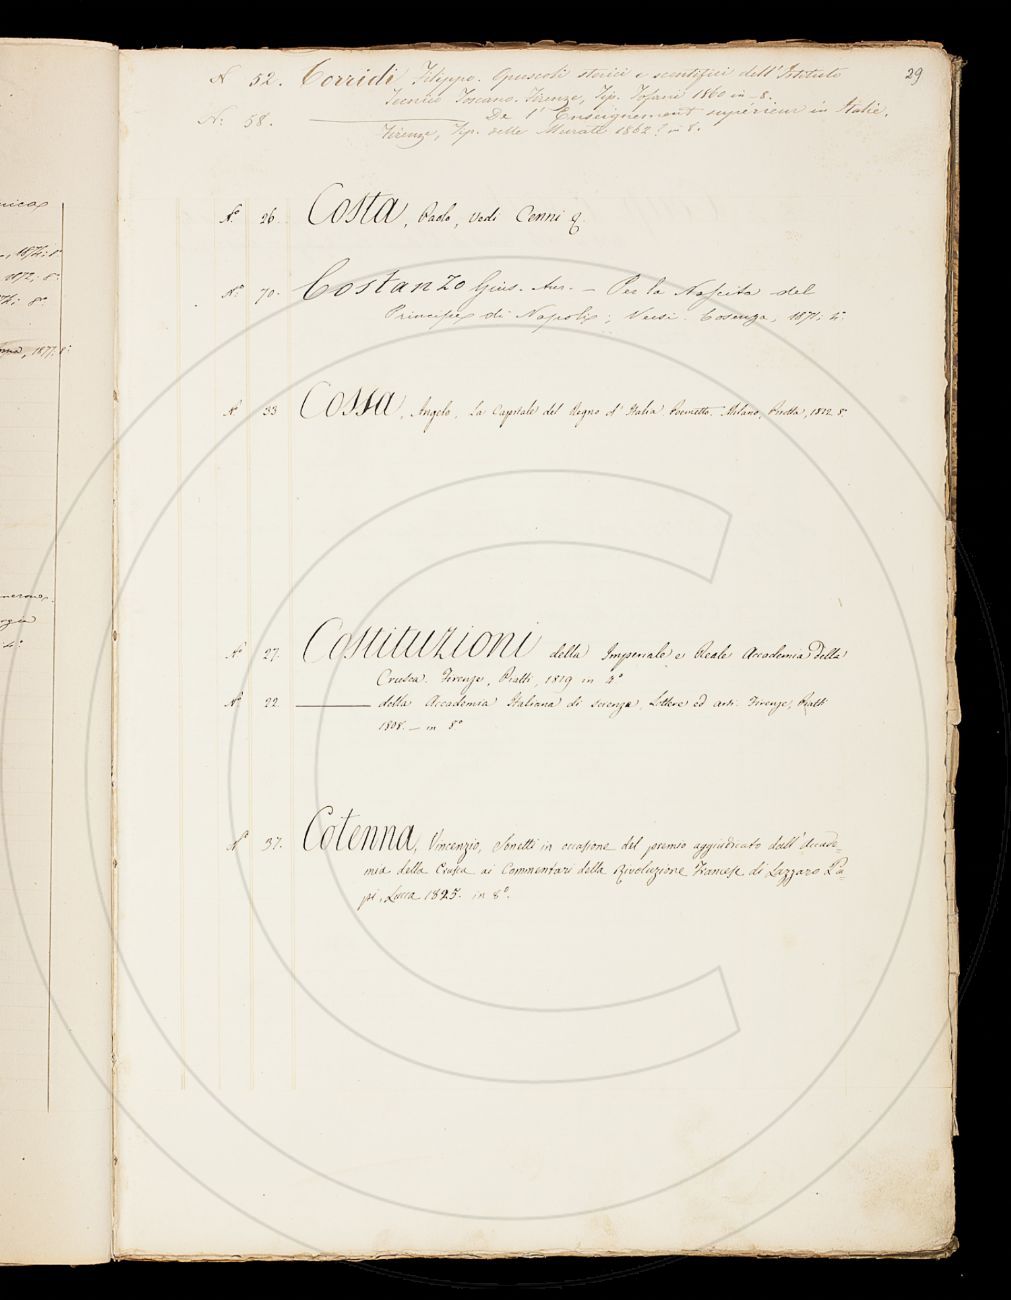 29
N. 52. Corridi Filippo. Opuscoli storici e scentifici dell'Istituto
Tecnico Toscano. Firenze, Tip. Tofani 1860 in-8.
N. 58. ——— De l'Enseignement supérieur in Italie,
Firenze, Tip. delle Murate 1862 in 8.
N.° 26. Costa, Paolo, vedi Cenni &.
N.° 70. Costanzo Gius. Aur. — Per la Nascita del
Principe di Napoli; Versi. Cosenza, 1871, 4.°
N.° 33 Cossa, Angelo, La Capitale del Regno d'Italia Poemetto. Milano, Pirotta, 1812 8.°
N.° 27. Costituzioni della Imperiale e Reale Accademia della
Crusca. Firenze, Piatti, 1819 in 4.°
N.° 22 ——— della Accademia Italiana di scienze, Lettere ed arti. Firenze, Piatti
1808. — in 8.°
N.° 37. Cotenna, Vincenzio, Sonetti in occasione del premio aggiudicato dall'Accade=
mia della Crusca ai Commentari della Rivoluzione Francese di Lazzaro Pa=
pi, Lucca 1825. in 8.°
nica
, 1871; 8.°
1872; 8.°
8.°
, 1877; 8.°
4.°